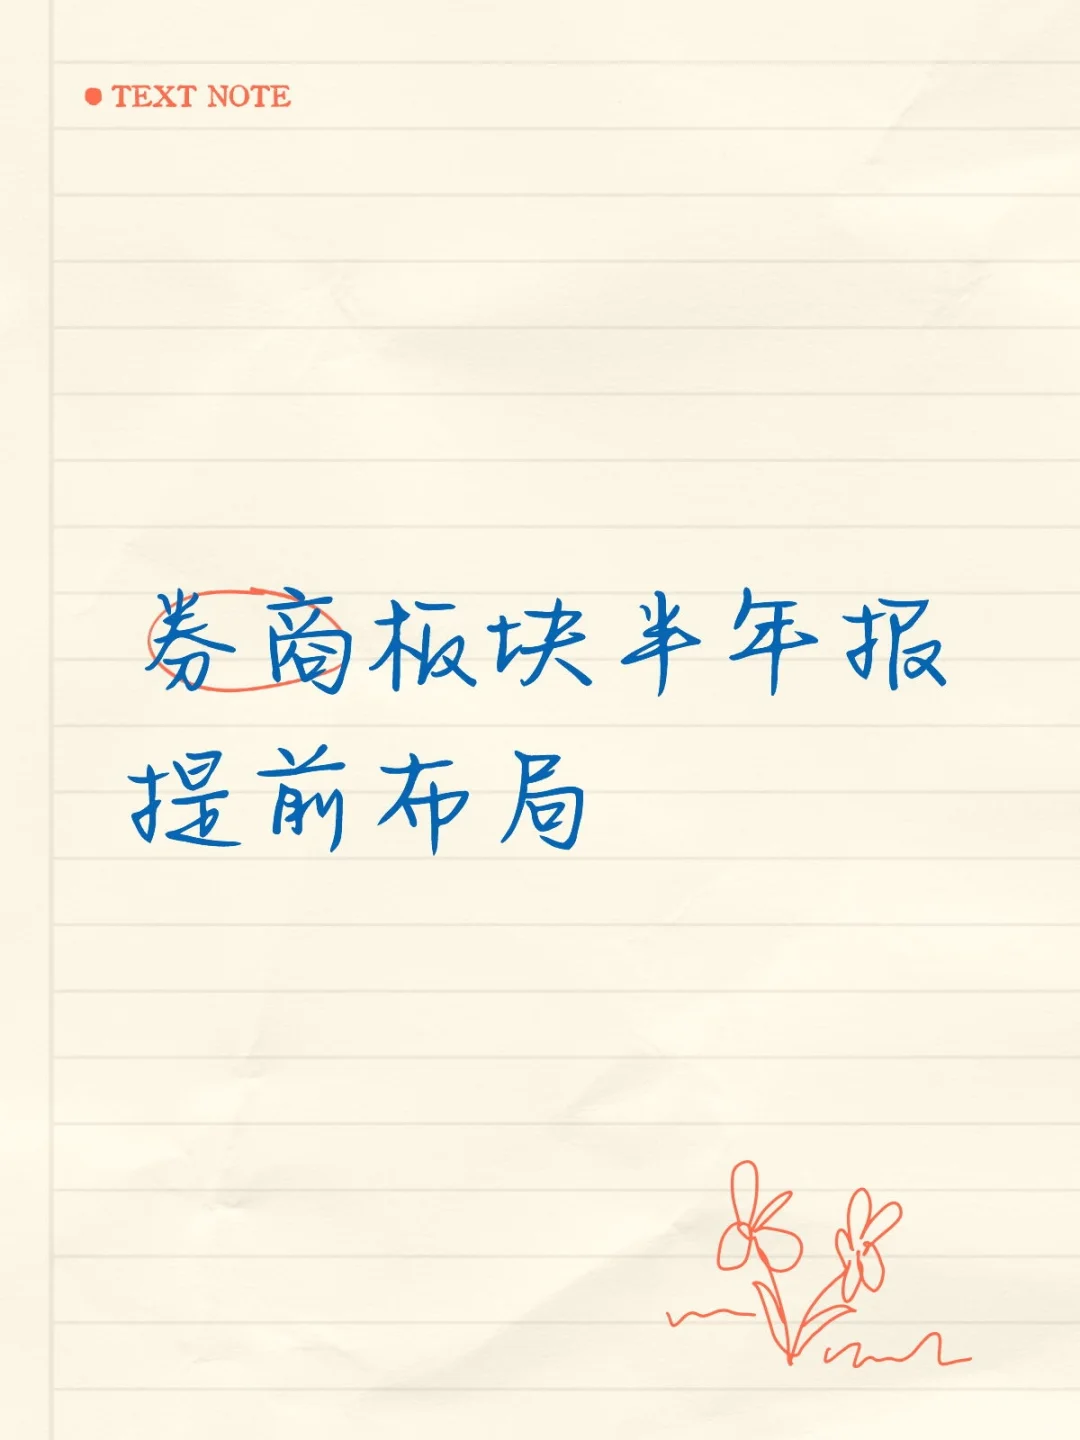 TEXT NOTE
券商板块半年报
提前布局